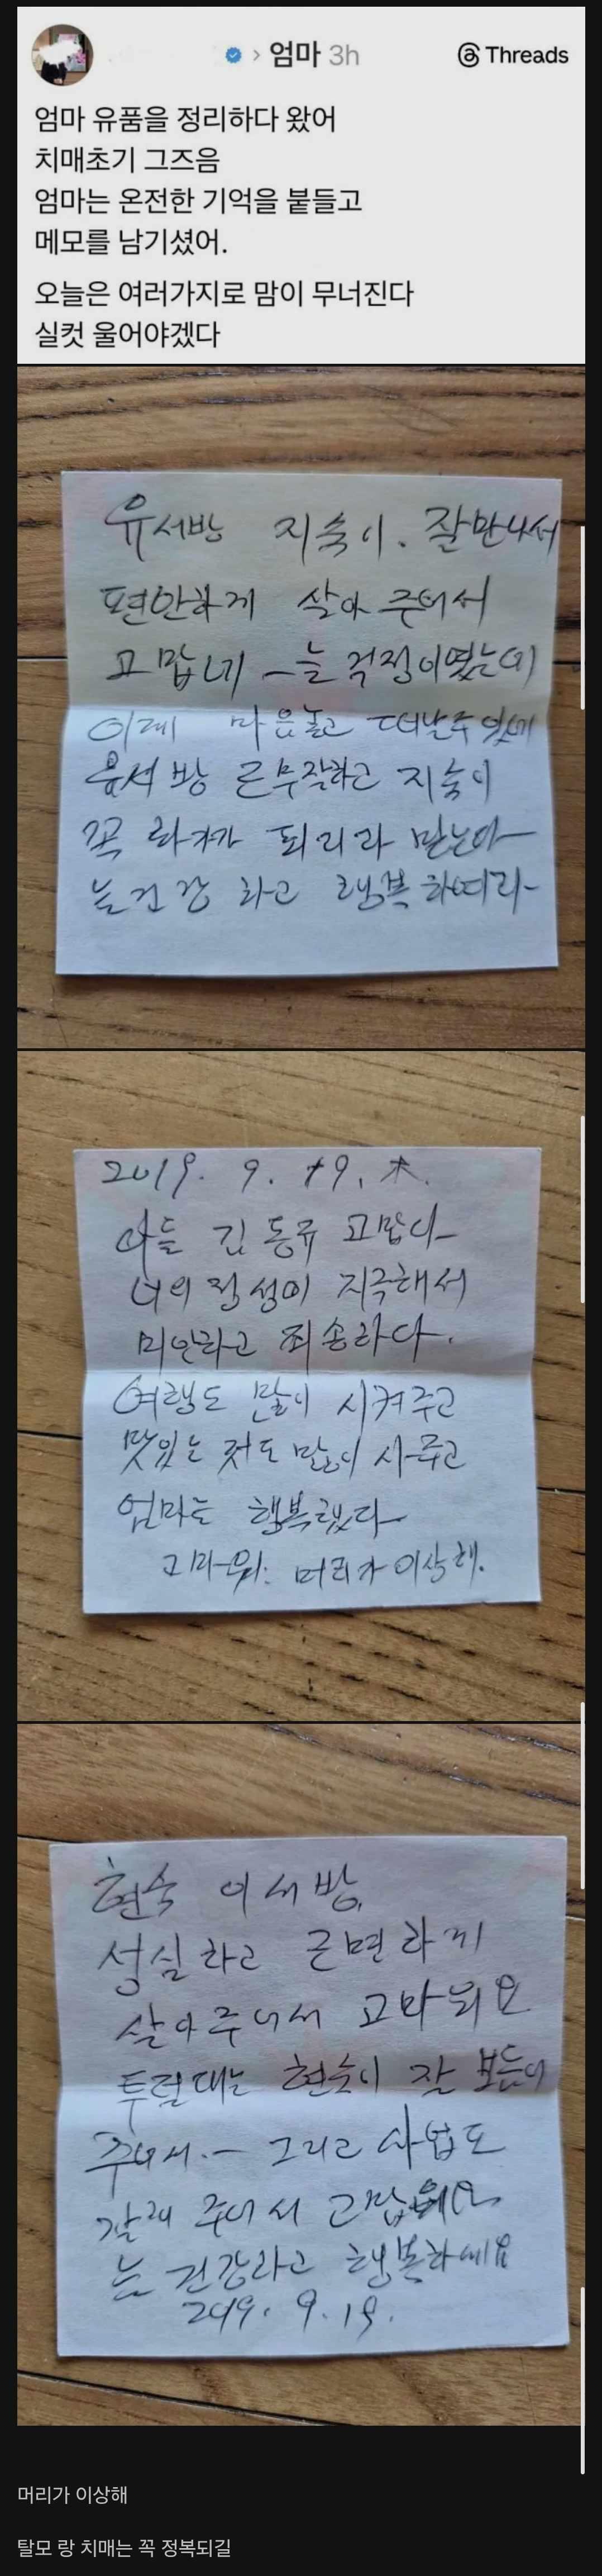 엄마 3h
Threads
엄마 유품을 정리하다 왔어
치매초기 그즈음
엄마는 온전한 기억을 붙들고
메모를 남기셨어.
오늘은 여러가지로 맘이 무너진다
실컷 울어야겠다
유서방 지숙이. 잘만나서
편안하게 살아 주어서
고맙네 늘 걱정이였는데
이제 마음놓고 떠날수 있네
유서방 지숙이
꼭 되리라 믿는다
늘건강 하고 행복하여라
2019. 9. 19. 木.
아들 김동규 고맙다
너의 정성이 지극해서
미안하고 죄송하다.
여행도 많이 시켜주고
맛있는 것도 많이 사주고
엄마는 행복했다
고마워. 머리가 이상해.
현숙 이서방.
성실하고 근면하게
살아주어서 고마워요
투럴대는 현숙이 잘 보듬어
주어서. 그리고 사업도
잘해 주어서
늘 건강하고 행복하세요
2019. 9. 19.
머리가 이상해
탈모 랑 치매는 꼭 정복되길